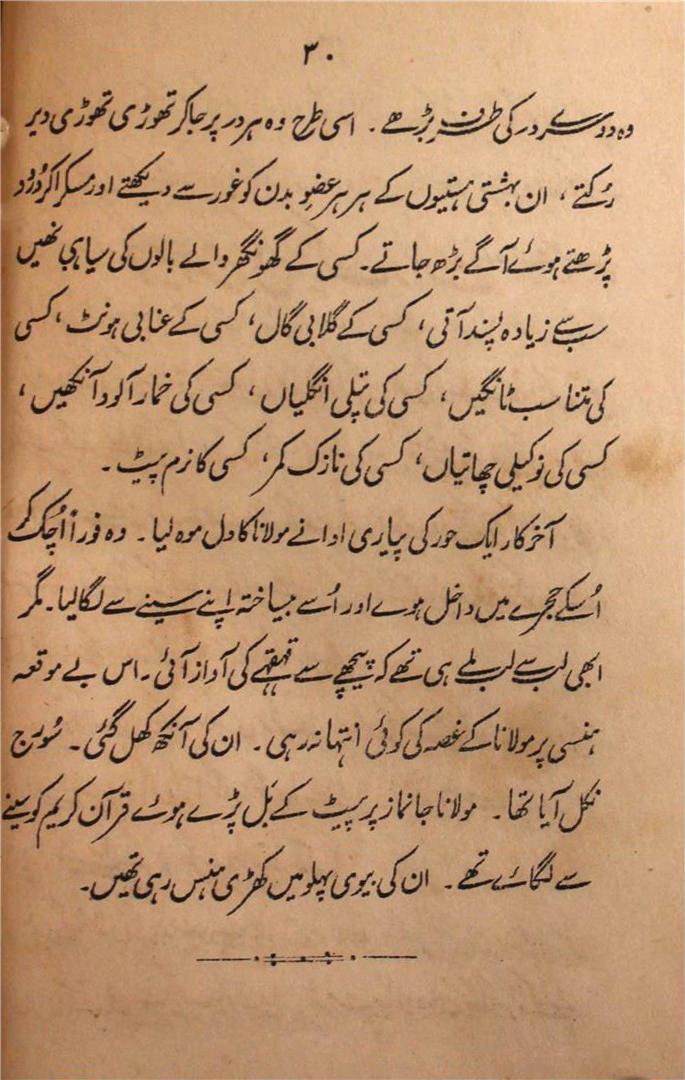 ۳۰
وہ دوسرے در کی طرف بڑھے۔ اسی طرح وہ ہر در پر جاکر تھوڑی تھوڑی دیر
رُکتے، ان بہشتی ہستیوں کے ہر ہر عضوِ بدن کو غور سے دیکھتے اور مسکرا کر دُرود
پڑھتے ہوئے آگے بڑھ جاتے۔ کسی کے گھونگھر والے بالوں کی سیاہی انھیں
سب سے زیادہ پسند آتی، کسی کے گلابی گال، کسی کے عنابی ہونٹ، کسی
کی متناسب ٹانگیں، کسی کی پتلی انگلیاں، کسی کی خمار آلود آنکھیں،
کسی کی نوکیلی چھاتیاں، کسی کی نازک کمر، کسی کا نرم پیٹ۔
آخر کار ایک حور کی پیاری ادا نے مولانا کا دل موہ لیا۔ وہ فوراً اُچک کر
اُسکے حجرے میں داخل ہوے اور اُسے بیساختہ اپنے سینے سے لگا لیا۔ مگر
ابھی لب سے لب ملے ہی تھے کہ پیچھے سے قہقہے کی آواز آئی۔ اس بے موقعہ
ہنسی پر مولانا کے غصہ کی کوئی انتہا نہ رہی۔ ان کی آنکھ کھل گئی۔ سُورج
نکل آیا تھا۔ مولانا جانماز پر پیٹ کے بَل پڑے ہوئے قرآن کریم کو سینے
سے لگائے تھے۔ ان کی بیوی پہلو میں کھڑی ہنس رہی تھیں۔